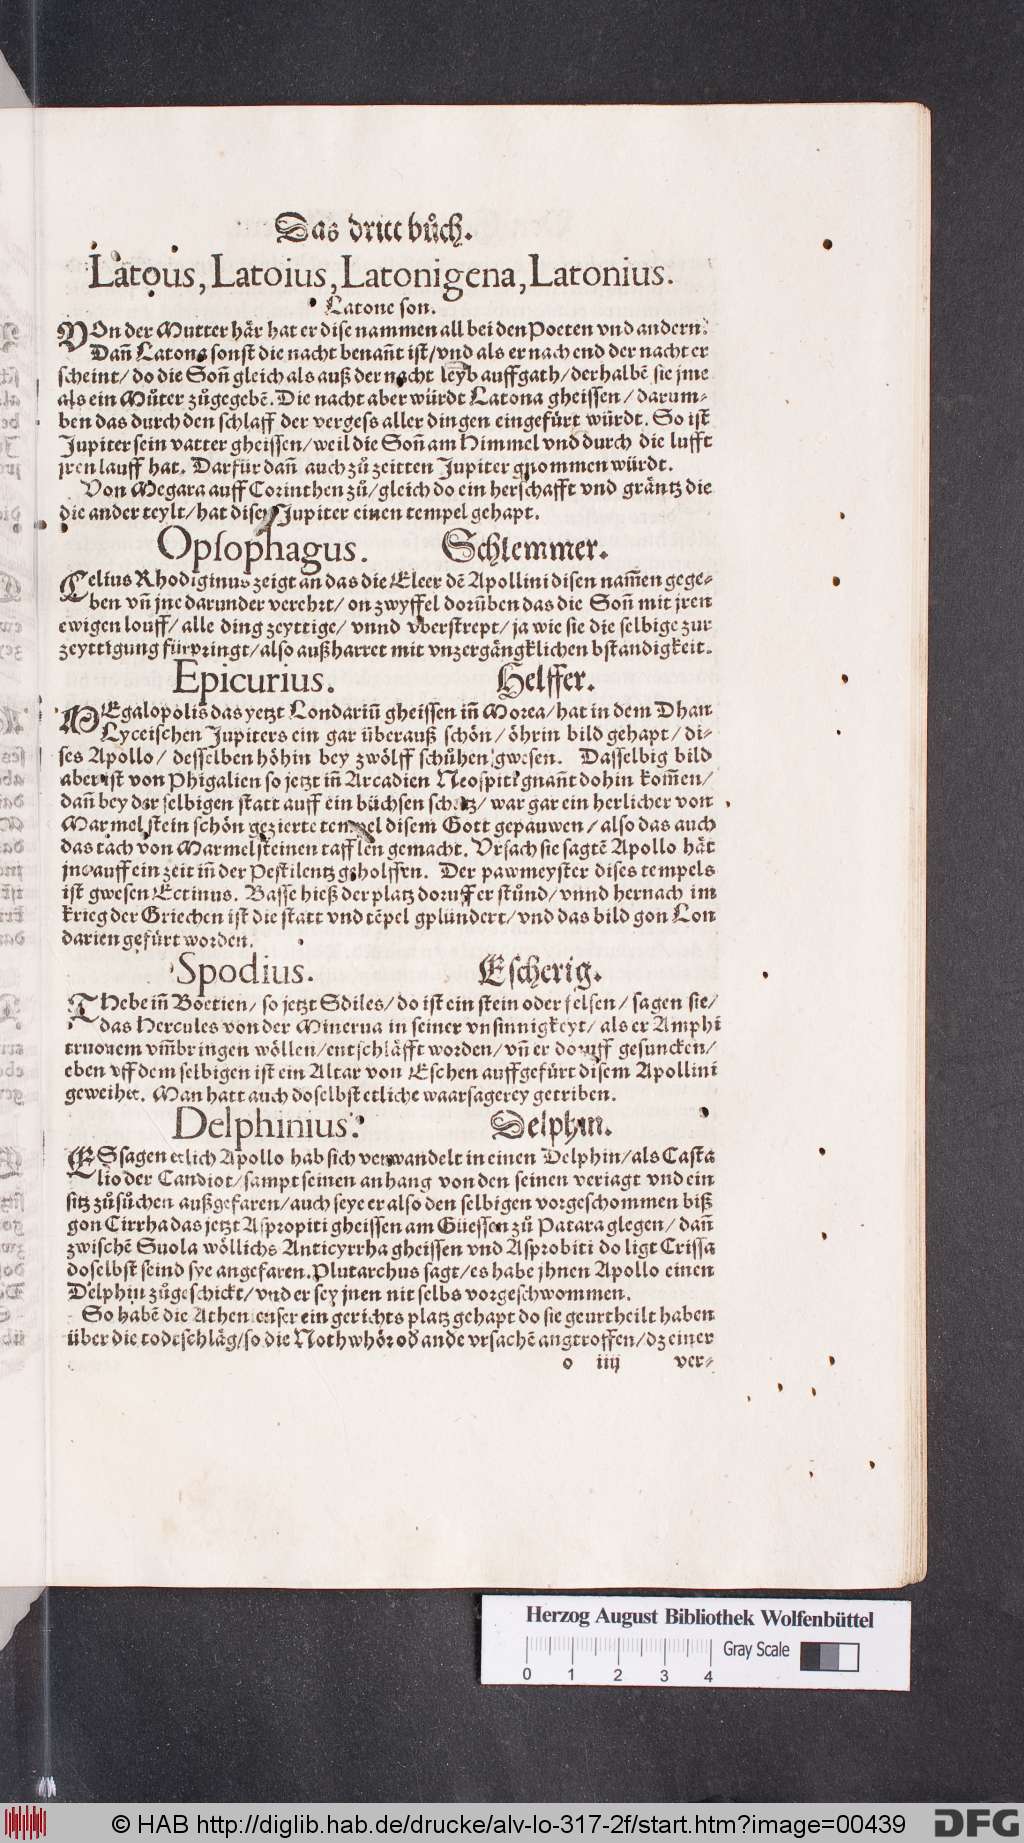 Das dritt bůch.
Latous, Latoius, Latonigena, Latonius.
Latone son.
VOn der Mutter här hat er dise nammen all bei den Poeten vnd andern.
Dañ Latona sonst die nacht benañt ist/ vnd als er nach end der nacht er
scheint/ do die Soñ gleich als auß der nacht leyb auffgath/ derhalbẽ sie jme
als ein Můter zůgegebẽ. Die nacht aber würdt Latona gheissen/ darum⸗
ben das durch den schlaff der vergess aller dingen eingefürt würdt. So ist
Jupiter sein vatter gheissen/ weil die Soñ am Himmel vnd durch die lufft
jren lauff hat. Darfür dañ auch zů zeitten Jupiter gnommen würdt.
Von Megara auff Corinthen zů/ gleich do ein herschafft vnd gräntz die
die ander teylt/ hat diser Jupiter einen tempel gehapt.
Opsophagus. Schlemmer.
Celius Rhodiginus zeigt an das die Eleer dẽ Apollini disen nam̃en gege⸗
ben vñ jne darunder verehrt/ on zwyffel dorüben das die Soñ mit jren
ewigen louff/ alle ding zeyttige/ vnnd vberstrept/ ja wie sie die selbige zur
zeyttigung fürpringt/ also außharret mit vnzergängklichen bstandigkeit.
Epicurius. Helffer.
MEgalopolis das yetzt Londariũ gheissen iñ Morea/ hat in dem Dhan
Lyceischen Jupiters ein gar überauß schön/ öhrin bild gehapt/ di⸗
ses Apollo/ desselben höhin bey zwölff schůhen gwesen. Dasselbig bild
aber ist von Phigalien so jetzt iñ Arcadien Neospiti gnañt dohin kom̃en/
dañ bey der selbigen statt auff ein büchsen schutz/ war gar ein herlicher von
Marmelstein schön gezierte tempel disem Gott gepauwen/ also das auch
das tach von Marmelsteinen tafflen gemacht. Vrsach sie sagtẽ Apollo hät
jnen auff ein zeit iñ der Pestilentz geholffen. Der pawmeyster dises tempels
ist gwesen Ectinus. Basse hieß der platz doruff er stůnd/ vnnd hernach im
krieg der Griechen ist die statt vnd tẽpel gplündert/ vnd das bild gon Lon
darien gefürt worden.
Spodius. Escherig.
Thebe iñ Boetien/ so jetzt Sdiles/ do ist ein stein oder felsen/ sagen sie/
das Hercules von der Minerua in seiner vnsinnigkeyt/ als er Amphi
truonem vm̃bringen wöllen/ entschläfft worden/ vñ er doruff gesuncken/
eben vff dem selbigen ist ein Altar von Eschen auffgefürt disem Apollini
geweihet. Man hatt auch doselbst etliche waarsagerey getriben.
Delphinius. Delphin.
ES sagen etlich Apollo hab sich verwandelt in einen Delphin/ als Casta
lio der Candiot/ sampt seinen anhang von den seinen veriagt vnd ein
sitz zůsůchen außgefaren/ auch seye er also den selbigen vorgeschommen biß
gon Cirrha das jetzt Aspropiti gheissen am Güessen zů Patara glegen/ dañ
zwischẽ Suola wöllichs Anticyrrha gheissen vnd Asprobiti do ligt Crissa
doselbst seind sye angefaren. Plutarchus sagt/ es habe jhnen Apollo einen
Delphin zůgeschickt/ vnd er sey jnen nit selbs vorgeschwommen.
So habẽ die Athenienser ein gerichts platz gehapt do sie geurtheilt haben
über die todtschläg/ so die Nothwhör od̃ andẽ vrsachẽ angtroffen/ dz einer
o iiij ver⸗
Herzog August Bibliothek Wolfenbüttel
0 1 2 3 4 Gray Scale
© HAB http://diglib.hab.de/drucke/alv-lo-317-2f/start.htm?image=00439
DFG